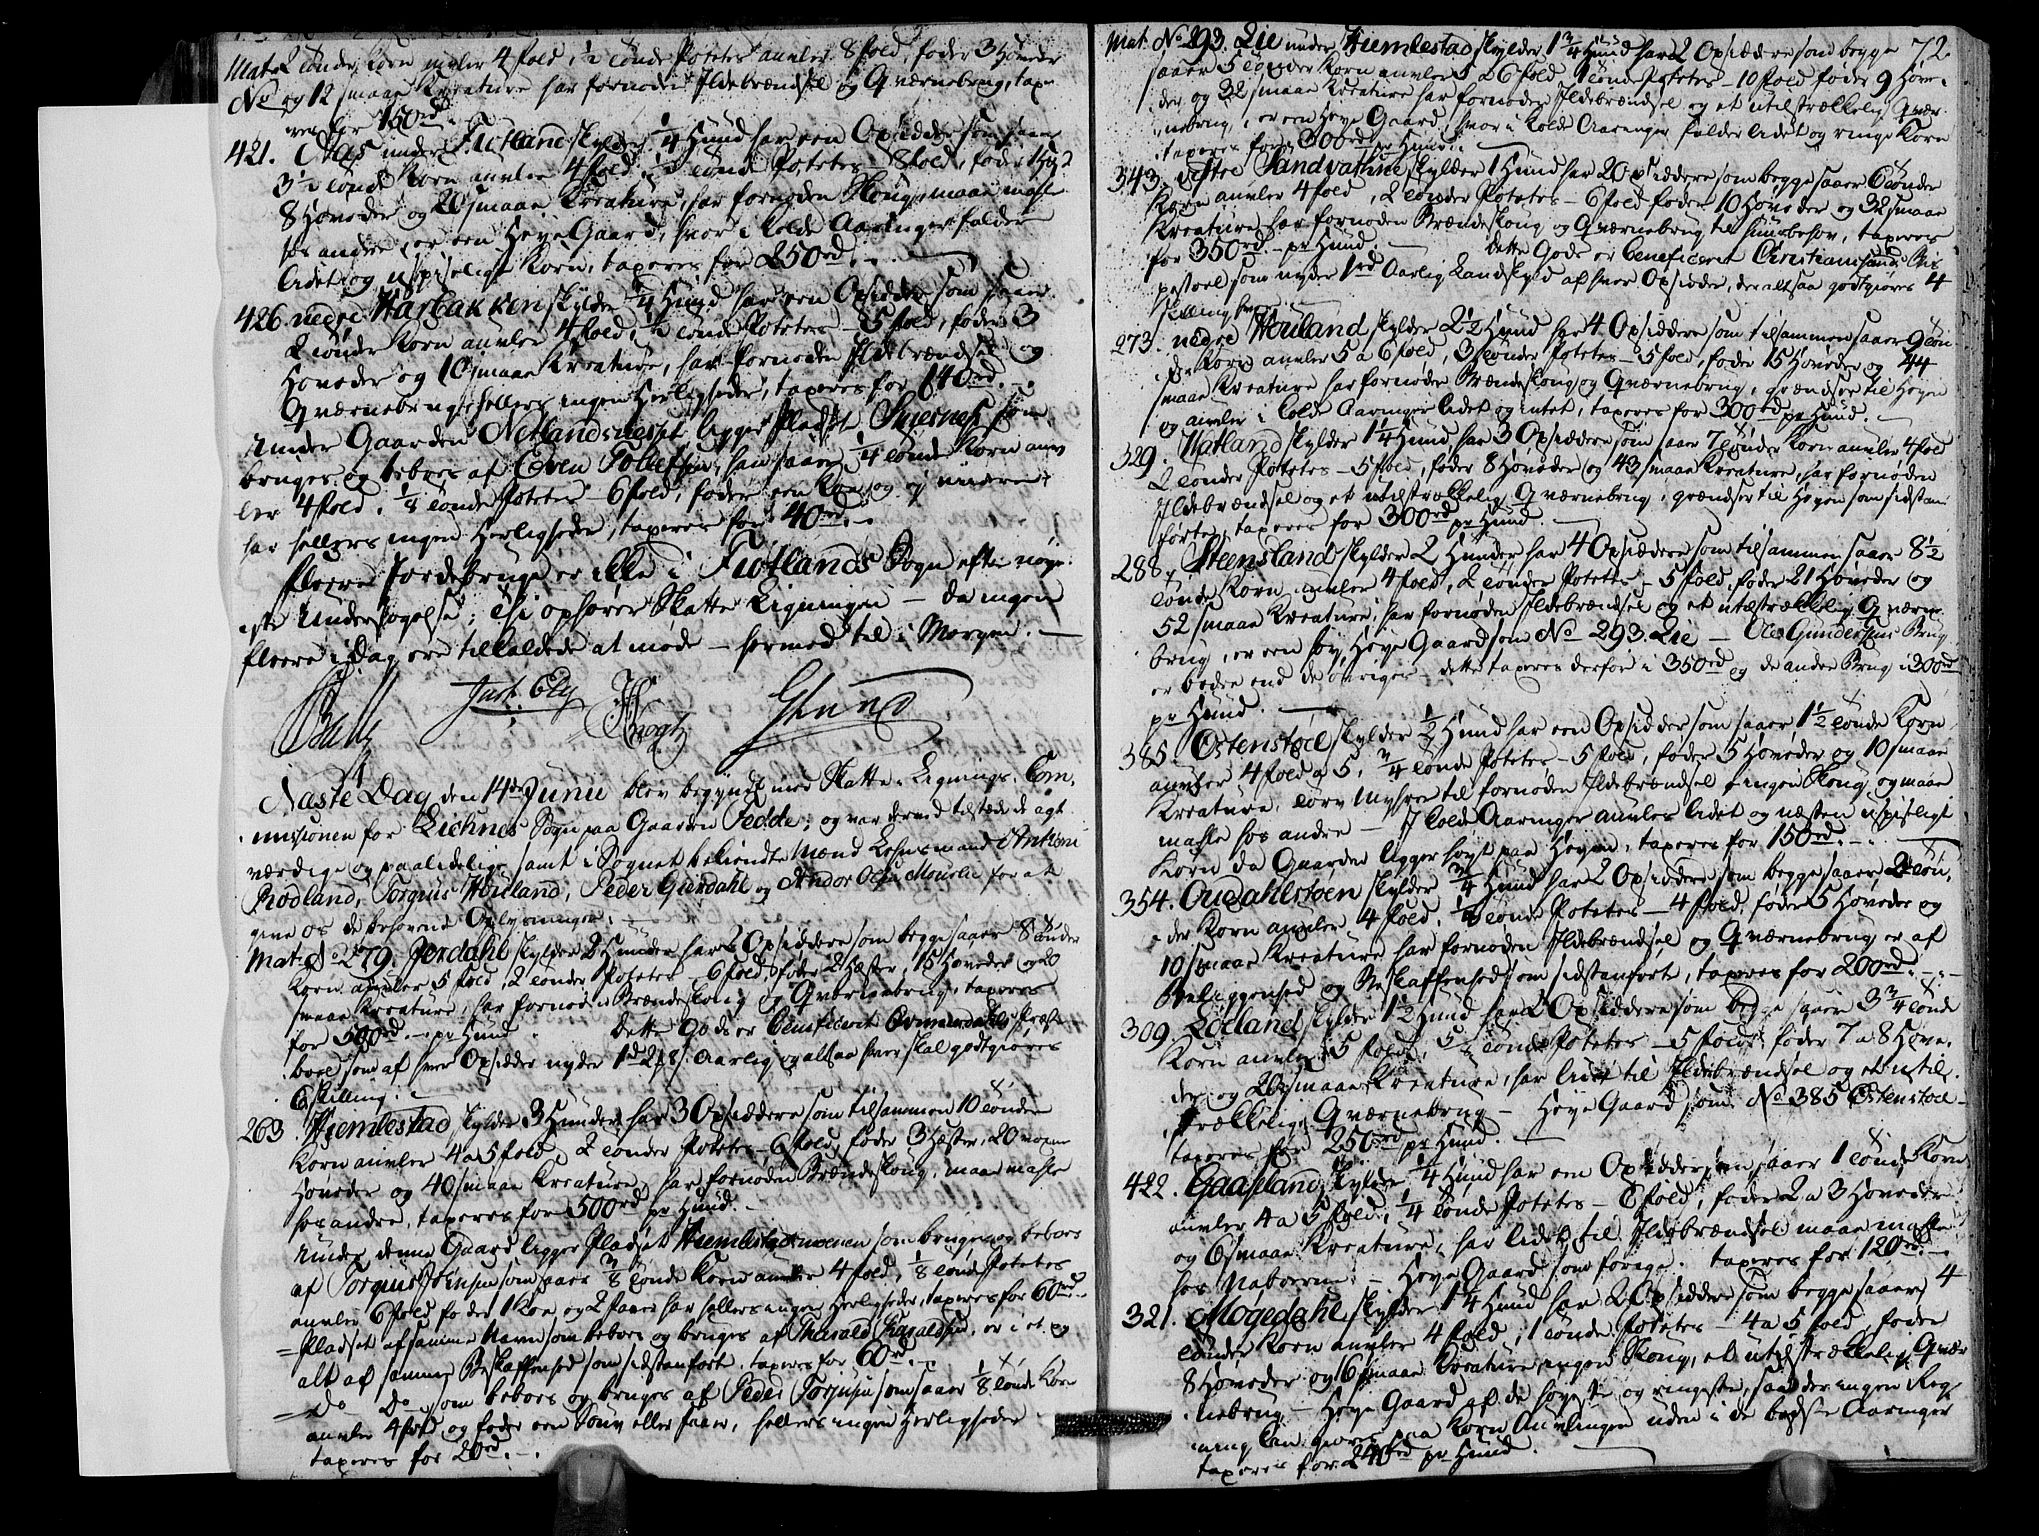 Mat. 2 tønder Korn avler 4 fold, ½ tønde Potetes avler 8 fold, føder 3 Hoveder
No og 12 smaae Kreature har fornøden Ildebrændsel og Qværnebrug, taxe-
res for 150rd.
421. under Fiotland skylder ¼ Hund har een Opsidder som saaer
3½ tønde Korn avler 4 fold, tønde Potetes 8 fold, føder
8 Hoveder og 20 smaae Kreature, har fornøden Skoug, maae male
hos andre, er een Høye Gaard, hvor i kolde Aaringer falder
lidet og uspiseligt Korn, taxeres for 250rd.
426. nedre Hasbakken skylder ¼ Hund har een Opsidder som saaer
2 tønder Korn avler 4 fold, ½ tønde Potetes – 5 fold, føder 3
Hoveder og 10 smaae Kreature, har fornøden Ildebrændsel og
Qværnebrug ellers ingen Herligheder, taxeres for 140rd.
Under Gaarden Netlandsnesset ligger Pladset som
bruges og beboes af Even Tollefsen, han saaer ¼ tønde Korn av-
ler 4 fold, ⅛ tønde Potetes – 6 fold, føder een Koe og
har ellers ingen Herligheder, taxeres for 40rd.
Fleere Jordebruge er ikke i Fiotlands Sogn efter nøye-
ste Undersøgelse; Thi ophører Skatte Ligningen – da ingen
fleere i Dag ere tilkaldede at møde – hermed til i Morgen.
Just. Ely
Næste Dag den 14de Junii blev begyndt med Skatte-Lignings-Com-
missionen for Liehnes Sogn paa Gaarden Fedde, og var dermed tilstæde de agt-
værdige og paalidelige samt i Sognet bekiendte Mænd Lehnsmand Anthoni
Rødland, Torgius Houland, Peder Gierdahl og Andor Olsen Mouelie for at
give os de behøvende Oplysninger.
Mat. No 279. Jerdahl skylder 2 Hunder har 2 Opsiddere som begge saaer 8 tønder
Korn avler 5 fold, 2 tønder Potetes – 6 fold, føder 2 Hæster, 15 Hoveder og 20
smaae Kreature, har fornøden Brændeskoug og Qværnebrug, taxeres
for 500rd – pr Hund. Dette Gods er Beneficeret Præste-
boel som af hver Opsidder nyder 1rd 24s. Aarlig og altsaa hver skal godtgiøres
6 skilling.
263. Hiemlestad skylder 3 Hunder har 3 Opsiddere som tilsammen 10 tønder
Korn avler 4 a 5 fold, 2 tønder Potetes – 6 fold, føder 3 Hæster, 20
Hoveder og 40 smaae Kreature, har fornøden Brændeskoug, maae male
hos andre, taxeres for 500rd pr Hund.
Under denne Gaard ligger Pladset Hiemlestadmoenen som bruges og beboes
af Torgius som saaer ⅜ tønde Korn avler 4 fold, ⅛ tønde Potetes
avler 6 fold føder 1 Koe og 2 faar har ellers ingen Herligheder, taxeres for 60rd.
= Pladset af samme Navn som beboes og bruges af Tharald Tharaldsen, er i et og
alt af samme Beskaffenhed som sidstanført, taxeres for 60rd.
= Do – Do som beboes og bruges af Peder Torjusen som saaer ⅛ tønde Korn
avler 4 fold og føder een Souv eller faar, ellers ingen Herligheder
taxeres for 20rd.
72.
Mat. No 293. Lie under Hiemlestad skylder 1¾ Hund har 2 Opsiddere som begge
saaer 5 tønder Korn avler 5 a 6 fold 1 tønde Potetes – 10 fold føder 9 Hove-
der og 32 smaae Kreature har fornøden Ildebrændsel og et utilstrækkelig Qvær-
nebrug, er een Høye Gaard, hvor i kolde Aaringer falder lidet og ringe Korn
taxeres for 300rd pr Hund.
343. østre Sandvathne skylder 1 Hund har 2 Opsiddere som begge saaer 6 tønder
Korn avler 4 fold, 2 tønder Potetes – 6 fold føder 10 Hoveder og 32 smaae
Kreature har fornøden Brændeskoug og Qværnebrug til huusbehov, taxeres
for 350rd – pr Hund. Dette Gods er beneficeret Christiansands Bis-
pestoel som nyder 1rd Aarlig Landskyld af hver Opsidder, der altsaa godtgiøres 4
skilling hver.
273. nedre Houland skylder 2½ Hund har 4 Opsiddere som tilsammen saaer 9 tøn-
der Korn avler 5 a 6 fold, 3 tønder Potetes – 5 fold, føder 15 Hoveder og 44
smaae Kreature har fornøden Brændeskoug og Qværnebrug, grændser til Heyen
og avler i kolde Aaringer lidet og intet, taxeres for 300rd pr Hund.
329. Hatland skylder 1¼ Hund har 3 Opsiddere som saaer 7 tønder Korn avler 4 fold
2 tønder Potetes – 5 fold, føder 8 Hoveder og 43 smaae Kreature, har fornøden
Ildebrændsel og et utilstrækkelig Qværnebrug, grændser til Heyen som sidstan-
førte, taxeres for 300rd pr Hund.
288. Steensland skylder 2 Hunder har 4 Opsiddere som tilsammen saaer 8½
tønde Korn avler 4 fold, 2 tønder Potetes – 5 fold, føder 21 Hoveder og
52 smaae Kreature, har fornøden Ildebrændsel og et utilstrækkelig Qværne-
brug, er een høy Høye Gaard som No 293. Lie – Ole Gundersens Brug
er bedre end de øvriges – dette taxeres derfor i 350rd og de andre Brug i 300rd
pr Hund.
385. Ostenstoel skylder ½ Hund har een Opsidder som saaer 1½ tønde Korn
avler 4 fold a 5, ¾ tønde Potetes – 5 fold, føder 5 Hoveder og 10 smaae
Kreature, til fornøden Ildebrændsel – ingen Skoug, og maae
male hos andre – I kolde Aaringer avles lidet og næsten uspiseligt
Korn da Gaarden ligger høyt paa Heyen, taxeres for 150rd.
354. Ouedahlstoen skylder ¾ Hund har 2 Opsiddere som begge saaer 2 tøn-
der Korn avler 4 fold, tønde Potetes – 4 fold, føder 5 Hoveder og
10 smaae Kreature har fornøden Ildebrændsel og Qværnebrug, er af
Beliggenhed og Beskaffenhed som sidstanførte, taxeres for 200rd.
309. Løeland skylder 1½ Hund har 2 Opsiddere som begge saaer 3¾ tønde
Korn avler 5 fold, tønde Potetes – 5 fold, føder 7 a 8 Hove-
der og 20 smaae Kreature, har lidet til Ildebrændsel og et util-
strækkelig Qværnebrug – Høye Gaard som No 385 Ostenstoel –
taxeres for 250rd pr Hund.
422. Gaasland skylder ¼ Hund har een Opsidder som saaer 1 tønde Korn
avler 4 a 5 fold, ¼ tønde Potetes – 6 fold, føder 2 a 3 Hoveder
og 6 smaae Kreature, har lidet til Ildebrændsel maae male
hos Naboerne – Høye Gaard som forrige. taxeres for 120rd.
321. Mogedahl skylder 1¼ Hund har 2 Opsiddere som begge saaer 4
tønder Korn avler 4 fold, 1 tønde Potetes – 4 a 5 fold, føder
8 Hoveder og 16 smaae Kreature, ingen Skoug, et utilstrækkelig Qvær-
nebrug – Høye Gaard af de høyeste og ringeste, saa der ingen Reg-
ning kan giøres paa Korn Avlingen uden i de bedste Aaringer
taxeres for 240rd pr Hund.